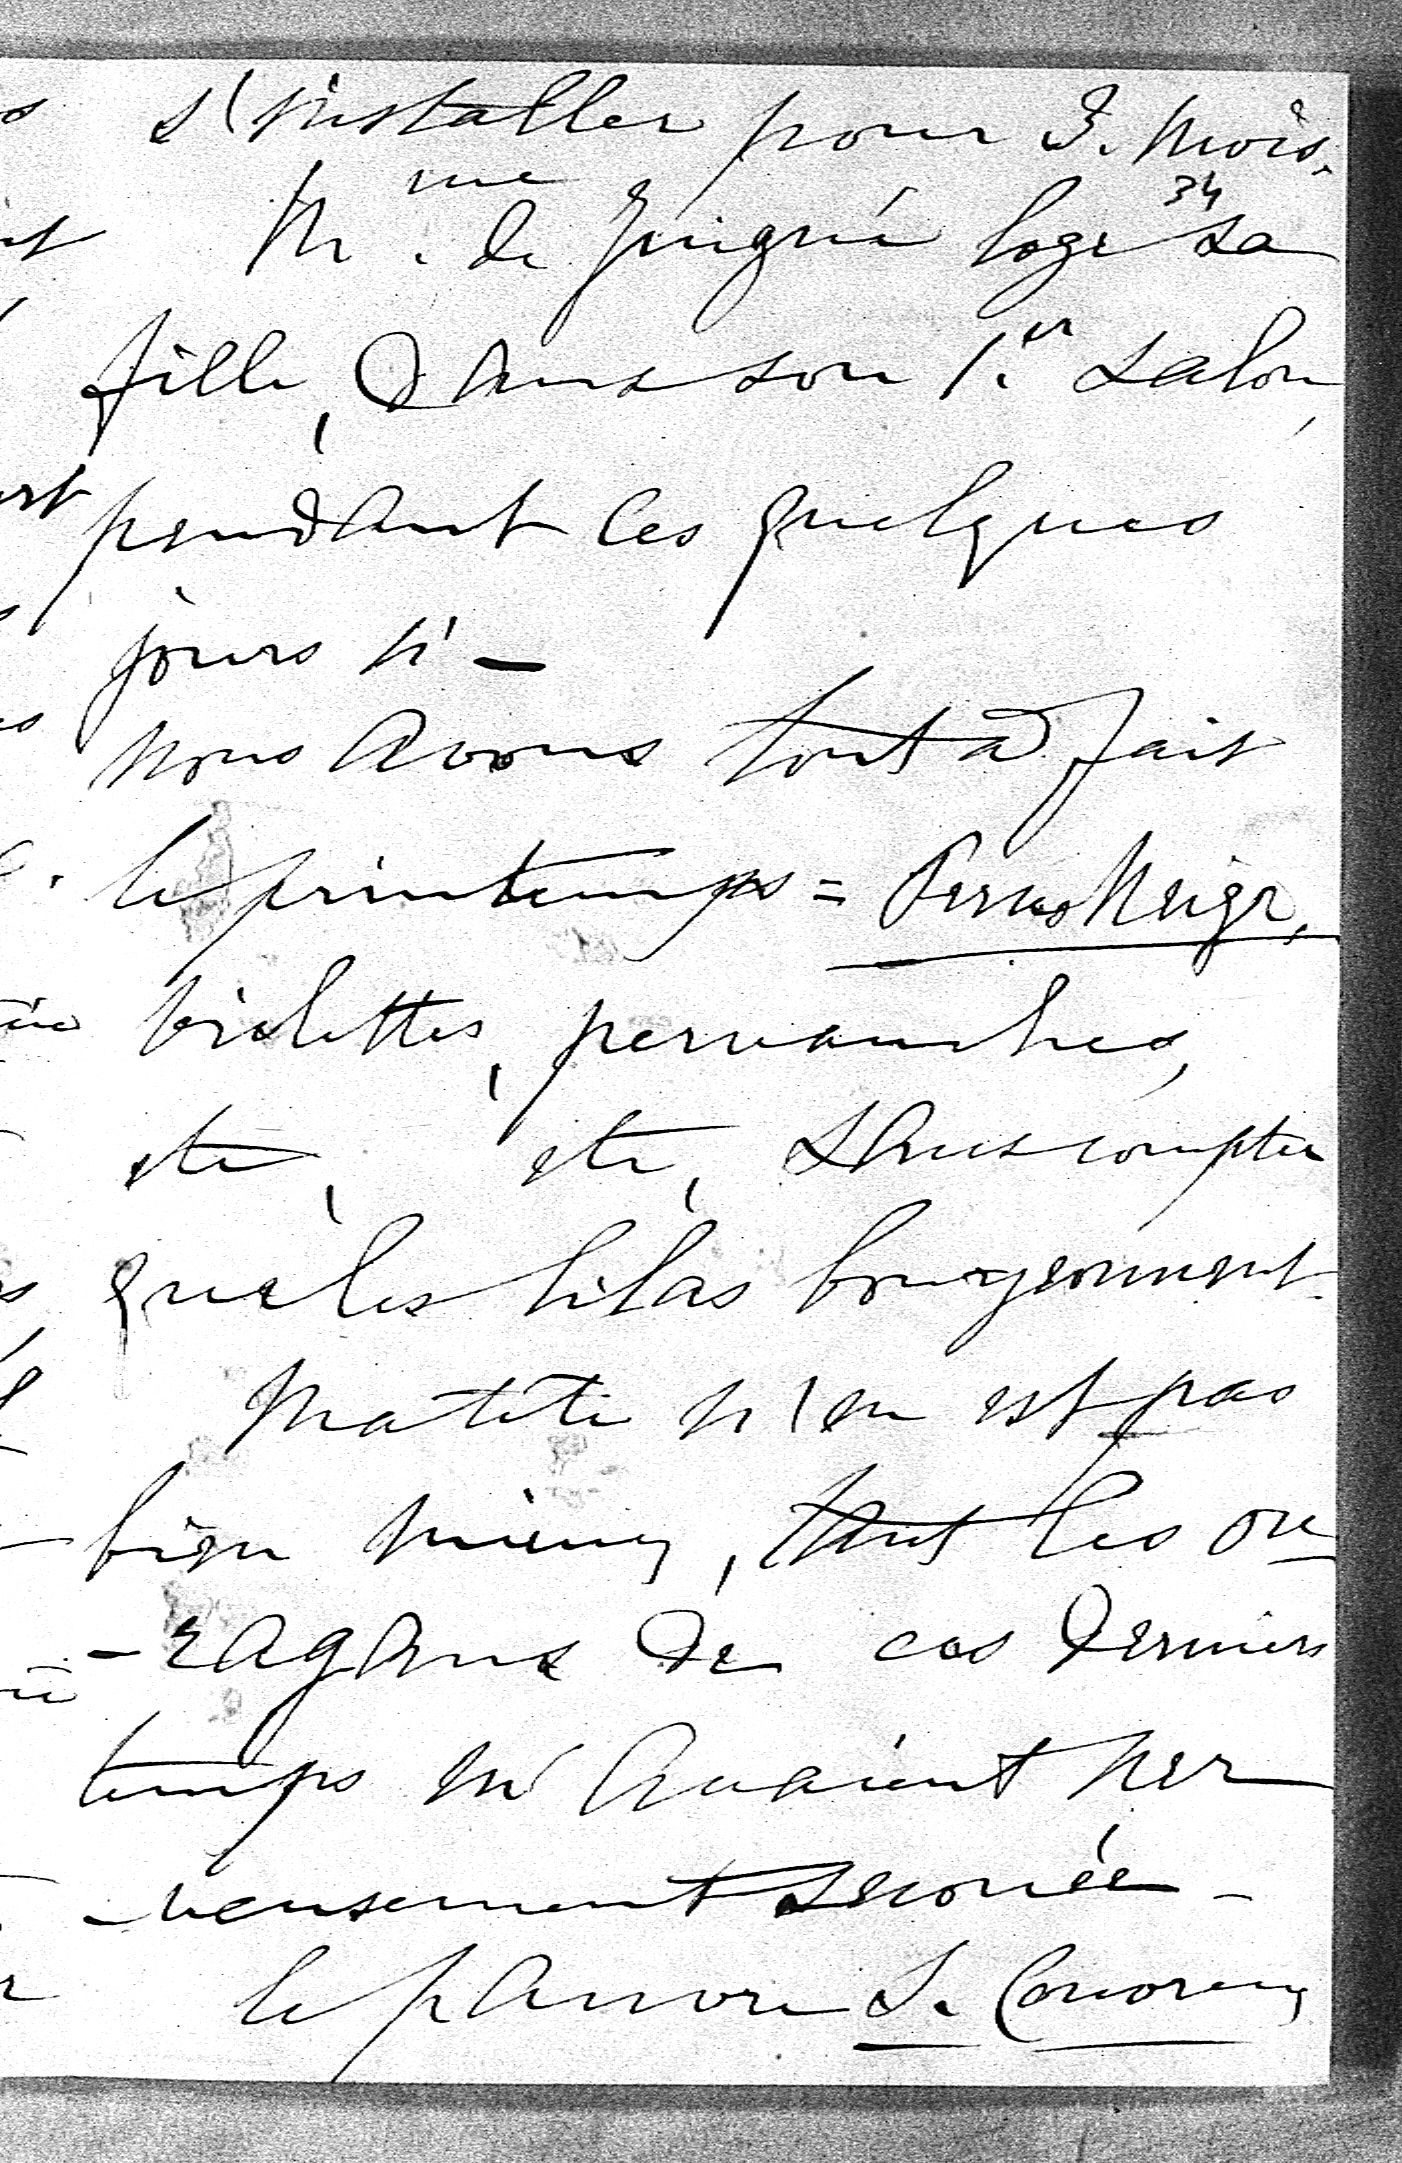 s'installer pour 3. mois.
Mme. de Juigné loge sa
34
fille, dans son 1.er salon,
pendant les quelques
jours ci —
nous avons tout à fait
le printemps = Perce Neige,
violettes, pervenches,
etc, etc, sans compter
que les lilas bourgeonnent.
Ma tête n'en est pas
bien mieux, tant les ou
- ragans de ces derniers
temps m'avaient ner
- veusement secouée -
le pauvre S.